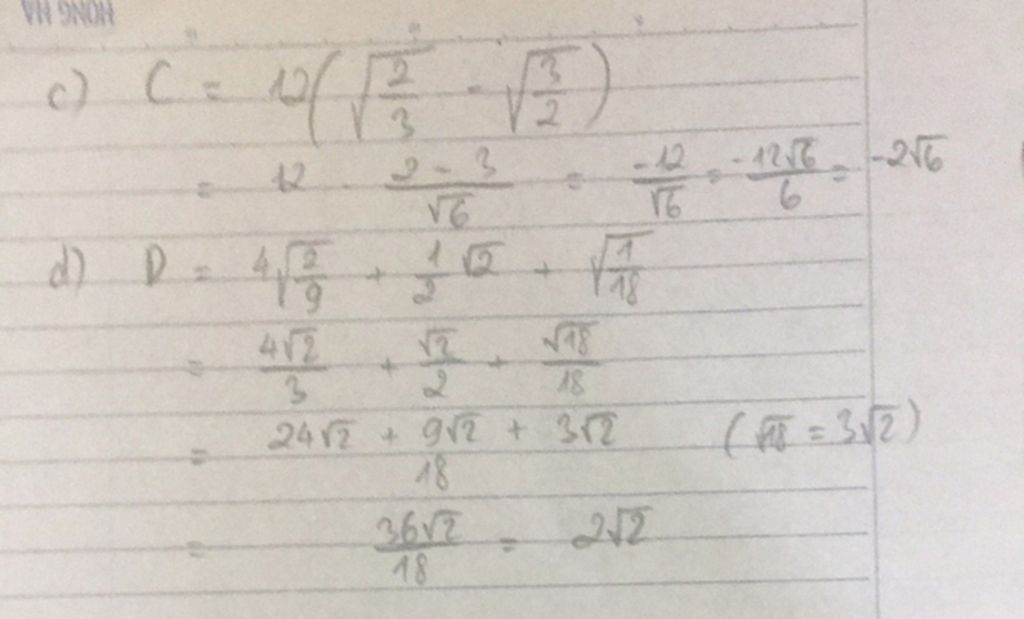 HONG HA
c) C = 12(√(2/3) - √(3/2))
= 12 . (2 - 3)/√6 = -12/√6 = -12√6/6 = -2√6
d) D = 4√(2/9) + 1/2 √2 + √(1/18)
= 4√2/3 + √2/2 + √18/18
= (24√2 + 9√2 + 3√2)/18 (√18 = 3√2)
= 36√2/18 = 2√2